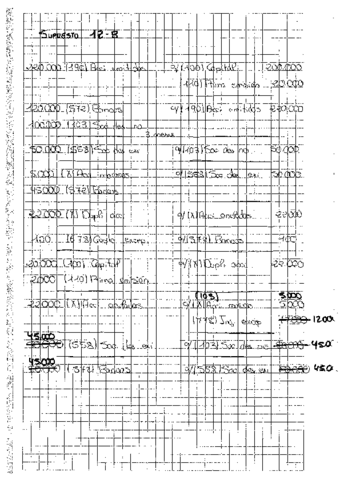 SUPUESTO 12-B
220.000 (190) Acci emitidas a/(100) Capital 200.000
(110) Prima emisión 20.000
120.000 (572) Bancos a/(190) Acci emitidas 220.000
100.000 (103) Soc des no
3 meses
50.000 (558) Soc des exi a/(103) Soc des no 50.000
5.000 (X) Acci a/(558) Soc des exi 50.000
45.000 (572) Bancos
22.000 (X) Dupli acc a/(X) Acci emitidas 22.000
100 (678) Gasto excep. a/(572) Bancos 100
20.000 (100) Capital a/(X) Dupli acc 22.000
2.000 (110) Prima emisión
(103) 5.000
22.000 (X) Acci emitidas a/(X) Acci 5.000
(778) Ing excep 1200
45.000
(558) Soc des exi a/(103) Soc des no 450
45.000
(572) Bancos a/(558) Soc des exi 450